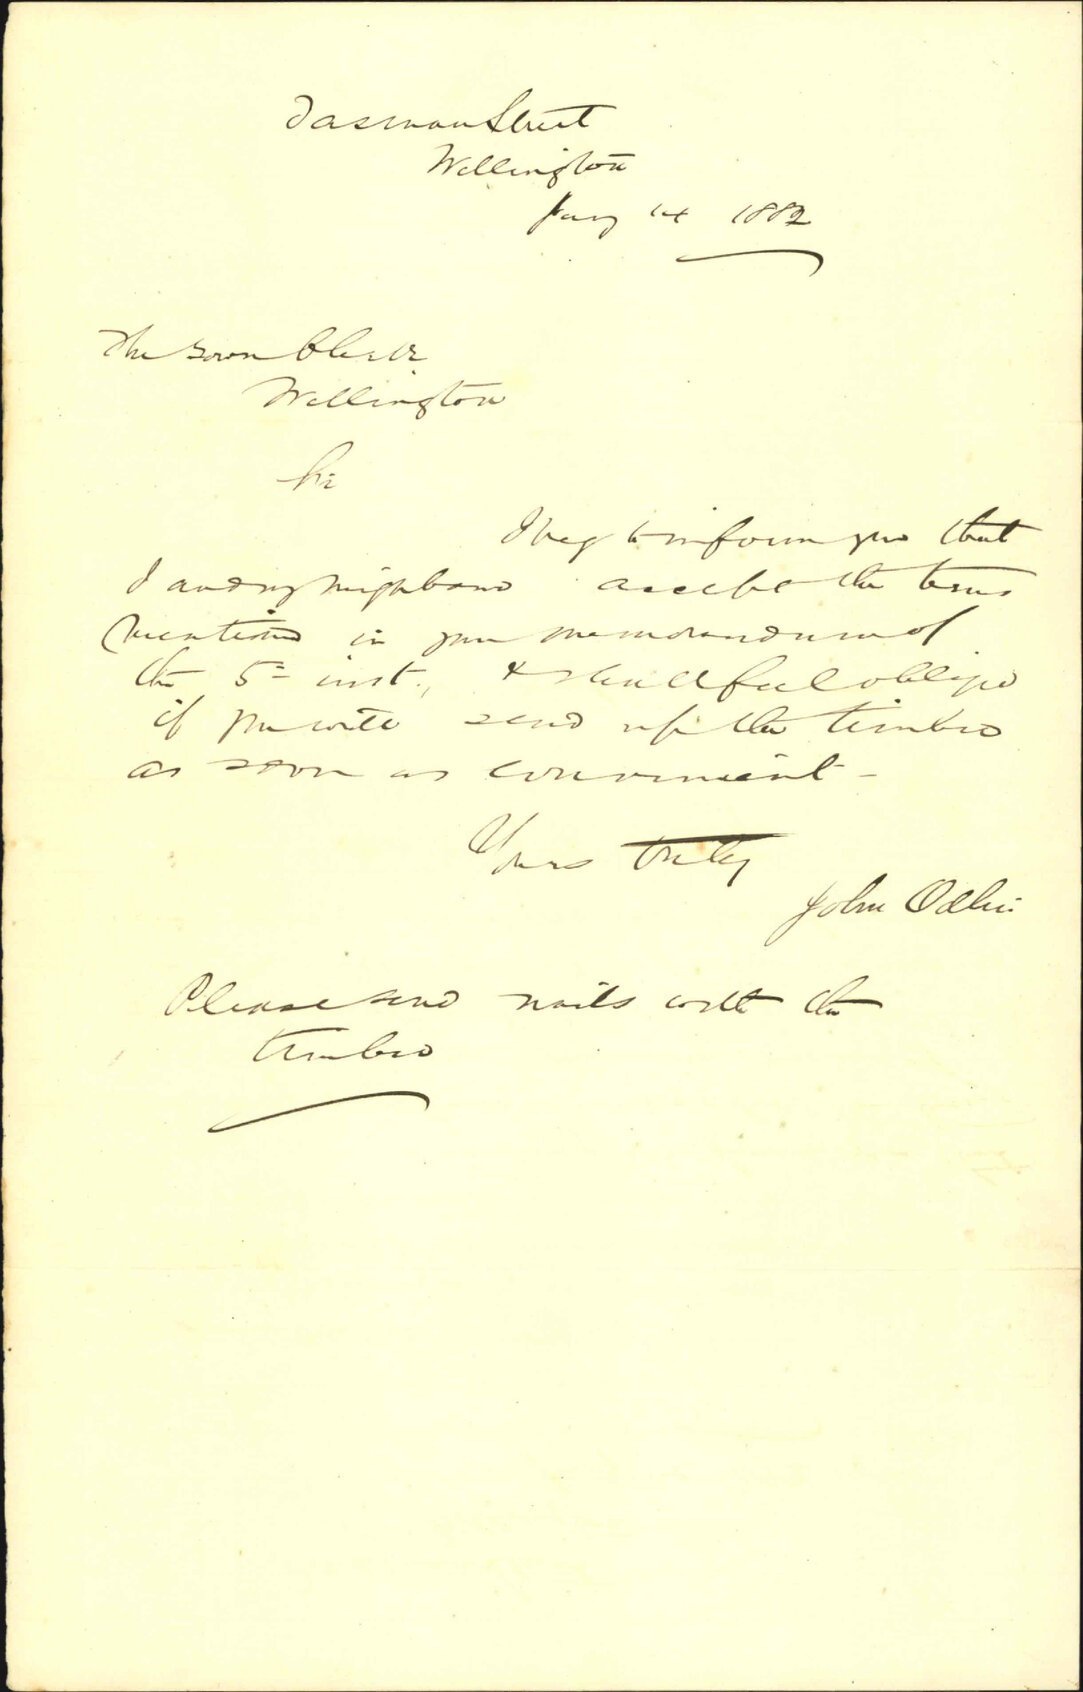 Tasman Street
Wellington
Jany 14 1882
The Town Clerk
Wellington
Sir
I beg to inform you that
I and my neighbours accept the terms
mentioned in your memorandum of
the 5th inst., & shall feel obliged
if you will send up the timber
as soon as convenient -
Yours truly
John Odlin
Please send nails with the
timber